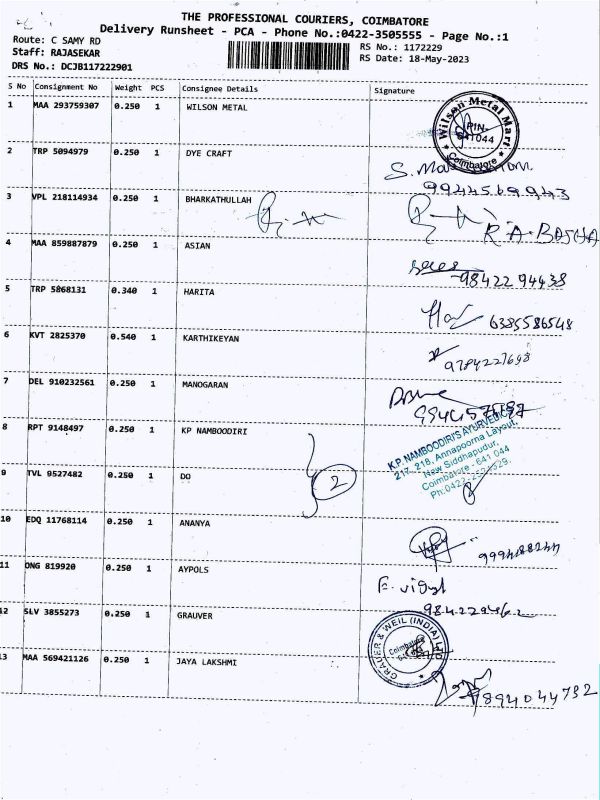 THE PROFESSIONAL COURIERS, COIMBATORE
Delivery Runsheet - PCA - Phone No.:0422-3505555 - Page No.:1
Route: C SAMY RD RS No.: 1172229
Staff: RAJASEKAR RS Date: 18-May-2023
DRS No.: DCJB117222901
S No Consignment No Weight PCS Consignee Details Signature
1 MAA 293759307 0.250 1 WILSON METAL
Wilson Metal Mart
PIN
641044
Coimbatore
2 TRP 5094979 0.250 1 DYE CRAFT
9944569943
3 VPL 218114934 0.250 1 BHARKATHULLAH
R.A.BASHA
4 MAA 859887879 0.250 1 ASIAN
98422 94438
5 TRP 5868131 0.340 1 HARITA
6385586548
6 KVT 2825370 0.540 1 KARTHIKEYAN
9784227698
7 DEL 910232561 0.250 1 MANOGARAN
8 RPT 9148497 0.250 1 KP NAMBOODIRI
K.P. NAMBOODIRI'S AYURVEDIC
217, 218, Annapoorna Layout,
New Siddhapudur,
Coimbatore - 641 044
9 TVL 9527482 0.250 1 DO
2
10 EDQ 11768114 0.250 1 ANANYA
11 ONG 819920 0.250 1 AYPOLS
12 SLV 3855273 0.250 1 GRAUVER
GRAUER & WEIL (INDIA) LTD
Coimbatore
13 MAA 569421126 0.250 1 JAYA LAKSHMI
7894044732